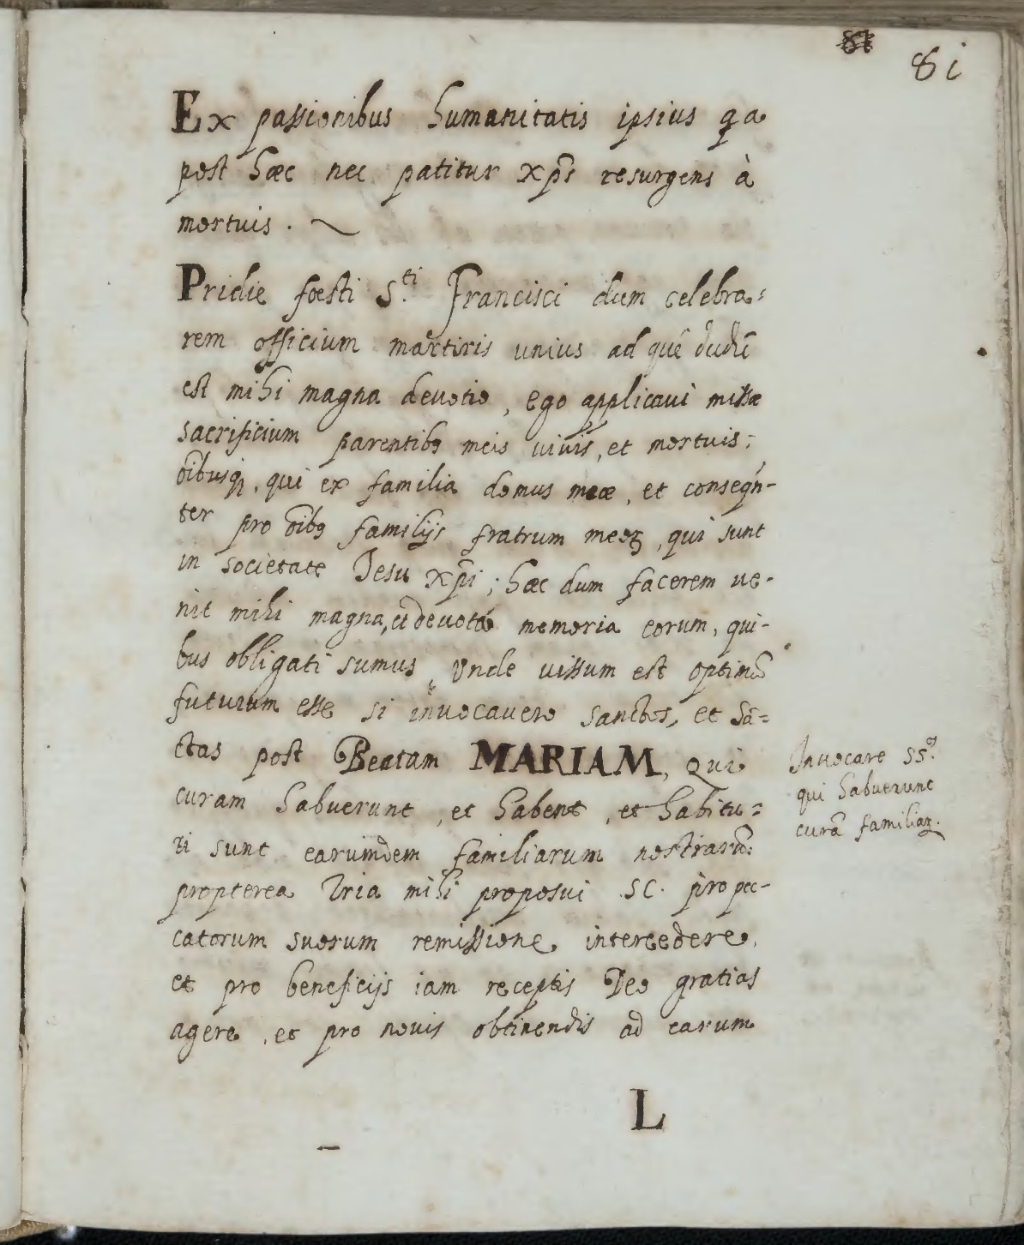 81
81
Ex passionibus humanitatis ipsius qa
post hæc nec patitur xp̃s resurgens à
mortuis.
Pridie fœsti S.ti Francisci dum celebra=
rem officium martiris unius ad quẽ
est mihi magna devotio, ego applicavi missæ
sacrificium parentibꝫ meis vivis, et mortuis;
õibusqꝫ, qui ex familia domus meæ, et conseqñ-
ter pro õibꝫ familijs fratrum meoꝝ, qui sunt
in societate Jesu xp̃i; hæc dum facerem ve-
nit mihi magna, et devota memoria eorum, qui-
bus obligati sumus, Unde vissum est optimũ
futurum esse si invocavero sanctos, et Sã=
ctas post Beatam MARIAM, qui
curam habuerunt, et habent, et habitu=
ri sunt earumdem familiarum nostrarũ:
propterea tria mihi proposui SC. pro pec-
catorum suorum remissione intercedere,
et pro beneficijs iam receptis Deo gratias
agere, et pro novis obtinendis ad earum
Invocare SS.os
qui habuerunt
curã familiaꝝ.
L